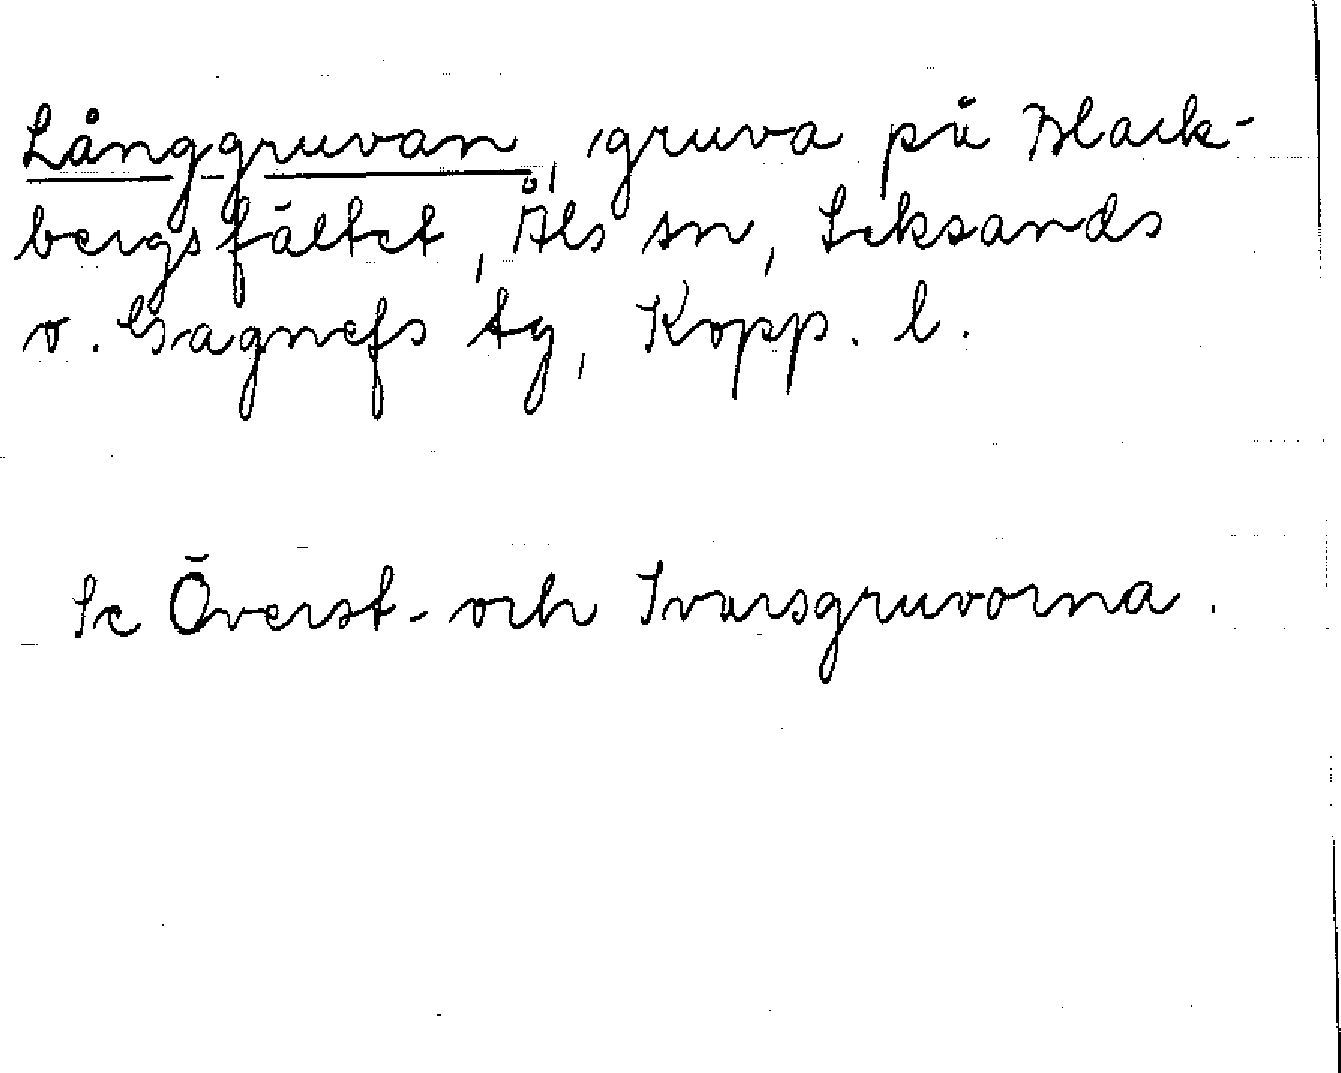 Långgruvan, gruva på Black-
bergsfältet, Åls sn, Leksands
o. Gagnefs tg, Kopp. l.
Se Överst- och Ivarsgruvorna.